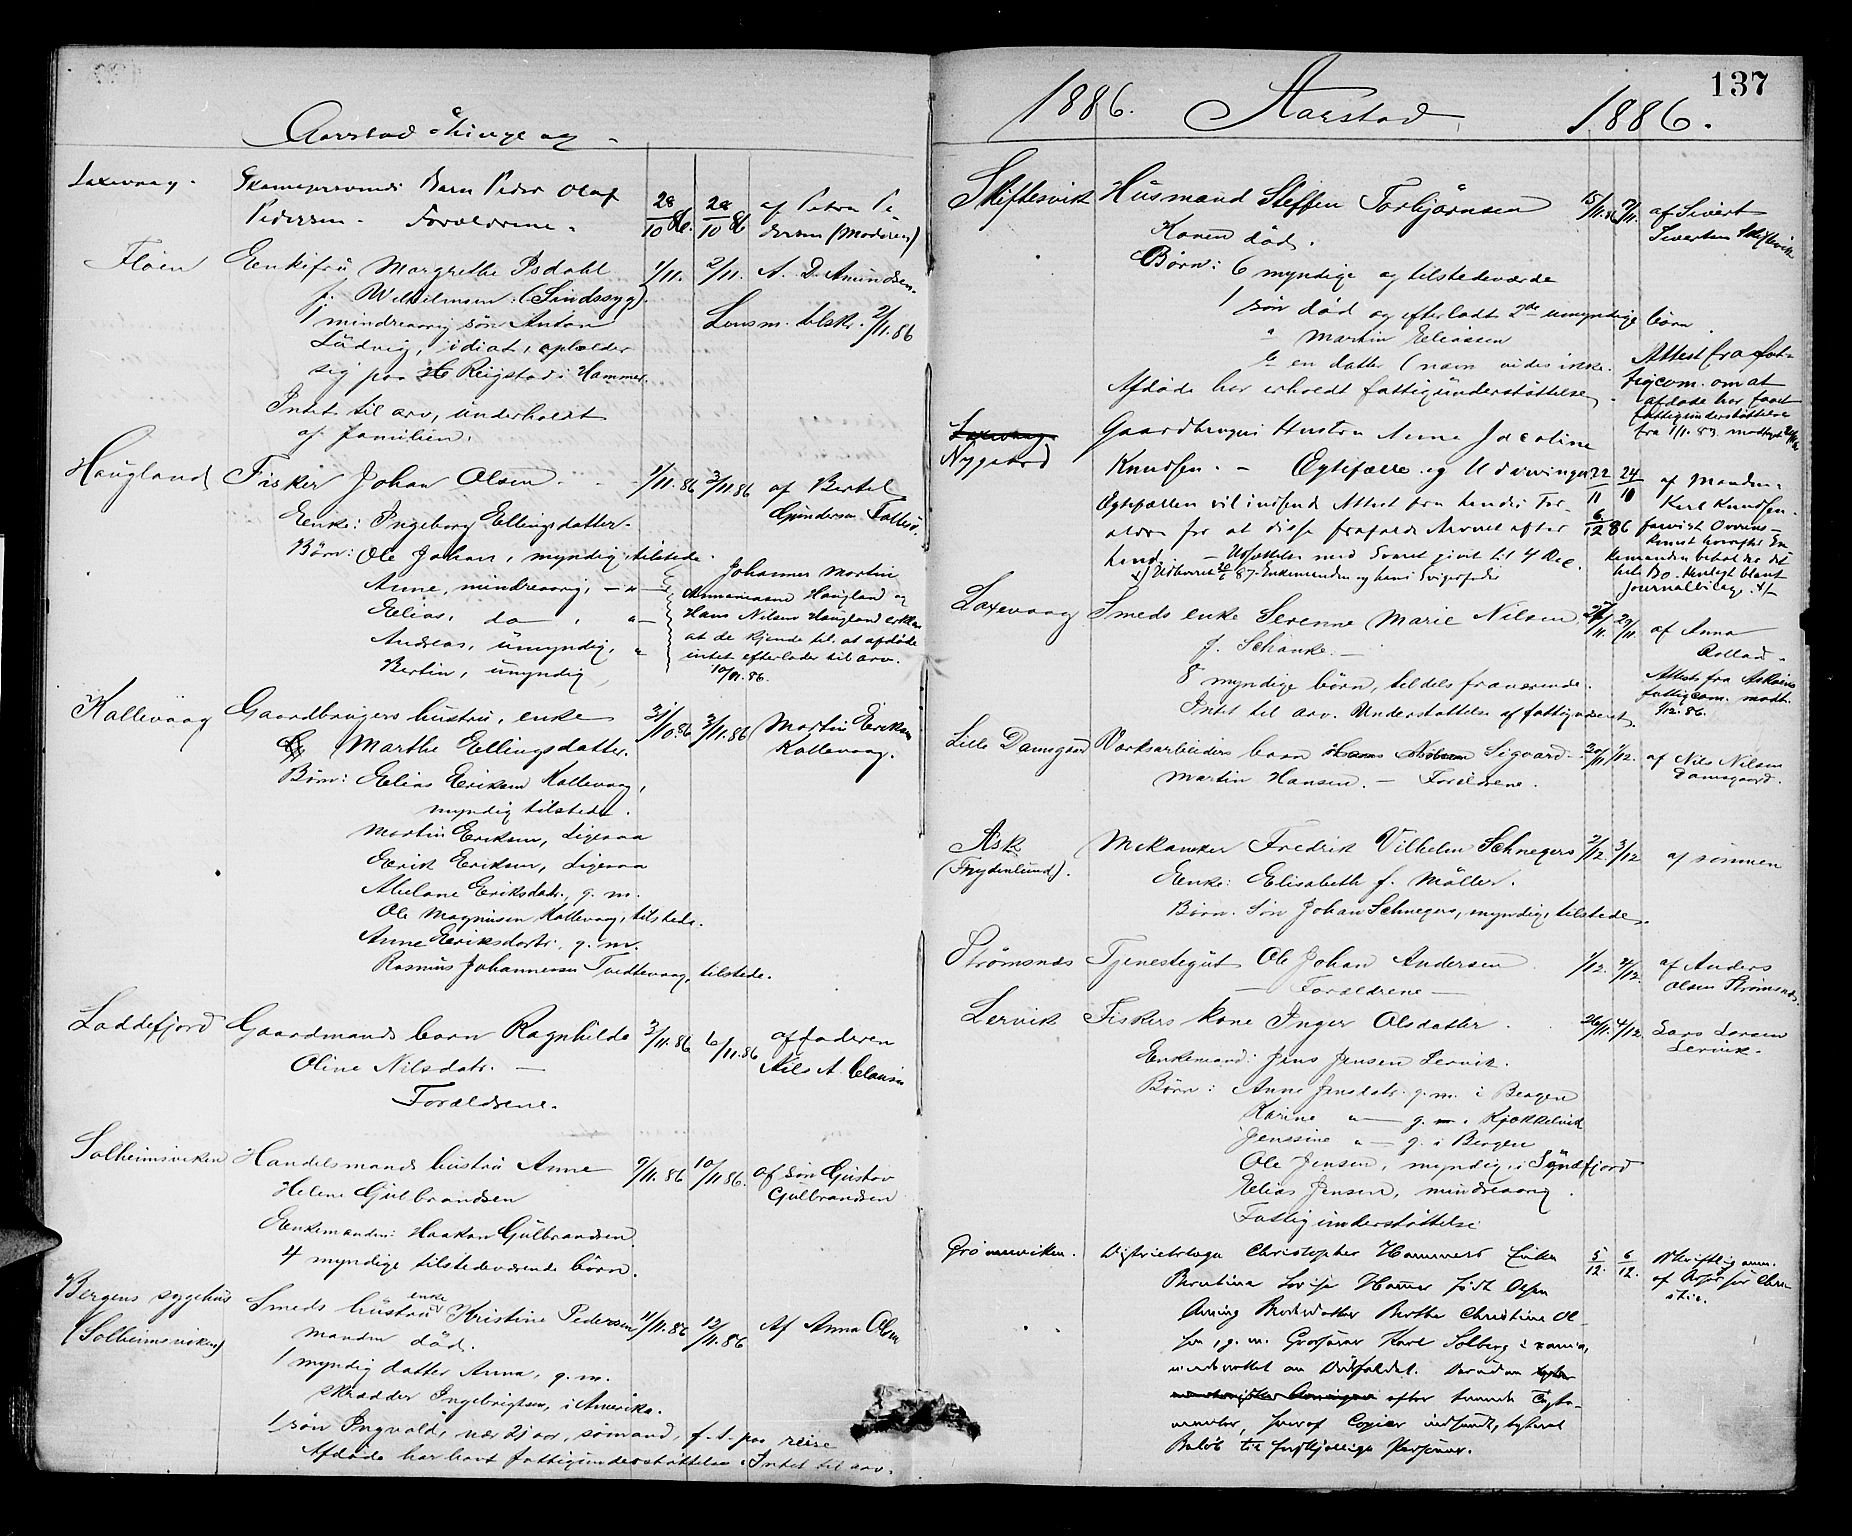 Aarstad
Laxevaag.
Barn Peder Olaf
Pedersen. Forældrene.
28/10 86. 28/10 86
af Petra Pe
dersen (Moderen)
Fløen
Enkefru Margrethe Isdahl
f. Wilhelmsen. (Sindssyg).
1 mindreaarig søn Anton
Ludvig, idiot, opholder
sig paa Reigstad i Hammer.
Intet til arv, underholdt
af familien.
1/11. 2/11. A. D. Amundsen.
Lensm. tilskr. 2/11. 86
Haugland
Fisker Johan Olsen.
1/11. 86 3/11 86 af Bertel
Gunderson
Enke: Ingeborg Ellingsdatter.
Børn: Ole Johan, myndig, tilstede.
Anne, mindreaarig, — " —
Elias, do, " —
Andreas, umyndig, "
Bertin, umyndig,
Johannes Martin
Haugland og
Hans Nilsen Haugland erklær
at de kjende til at afdøde
intet efterlader til arv.
10/11. 86.
Kallevaag
Gaardbrugers hustru, enke
Marthe Ellingsdatter.
31/10. 86 3/11. 86 Martin Eriksen
Kallevaag.
Børn: Elias Eriksen Kallevaag,
myndig tilstede.
Martin Eriksen, Ligesaa
Erik Eriksen, Ligesaa
Eriksdatr., g. m.
Ole Magnusen Kallevaag, tilstede.
Anne Eriksdatr. g. m.
Rasmus Johannesen Tvedtevaag, tilstede.
Loddefjord
Gaardmands barn Ragnhilde
Oline Nilsdatr. —
Forældrene.
3/11. 86 6/11. 86 af faderen
Nils A. Clausen
Solheimsviken
Handelsmands hustru Anne
Helene Gulbrandsen
Enkemanden: Haakon Gulbrandsen.
4 myndige tilstedeværende børn.
9/11. 86 10/11 86. af søn Gustav
Gulbrandsen
Bergens sygehus
(Solheimsviken)
Smeds hustru enke Kristine Pedersen
manden død.
1 myndig datter Anna, g. m.
skrædder Ingebrigtsen, i Amerika.
1 søn Ingvald, nær 21 aar, sømand, f. t. paa reise
Afdøde har havt fattigunderstøttelse. Intet til arv.
11/11. 86 12/11. 86 Af Anna Olsen
137
1886. Aarstad 1886.
Skiftesvik
Husmand Steffen Torbjørnsen
Konen død.
Børn: 6 myndige og tilstedeværde
1 søn død og efterladt 2de umyndige børn.
Martin Eliassen
en datter (navn vides ikke.
Afdøde har erholdt fattigunderstøttelse.
15/11. 86 17/11. af Sivert
Sivertsen Skiftesvik
Attest fra fat-
tigcom. om at
afdøde har faaet
fattigunderstøttelse
fra 1/1. 83 modtaget
Laxevaag.
Nygaard
Gaardbrugers Hustru Anne Jacoline
Knudsen. — Ægtefælle og Udarvinger
Ægtefællen vil indsende Attest fra hendes For-
ældre for at disse frafalde Arven efter
hende. — Udsættelse med Svaret givet til 4 Dec.
22/11 24/11 af Manden
Karl Knudsen.
6/12 86
beholder det
hele Bo. Henlagt blandt
Journalbilag.
Laxevaag
Smeds enke Serenne Marie Nilsen
f. Schanke. —
8 myndige børn, tildels fraværende.
Intet til arv. Understøttelse af fattigvæsenet.
29/11. af Anna
Attest fra Askøens
fattigcom. modt.
1/12. 86.
Lille Damsgaard
Værksarbeiders barn Sigvard
Martin Hansen. — Forældrene.
30/11 1/12. af Nils Nilsen
Damsgaard.
Ask
(Frydenlund).
Mekaniker Fredrik Vilhelm Schnegers
Enke: Elisabeth f. Møller.
Børn. Søn Johan Schnegers, myndig, tilstede.
2/12. 3/12 af sønnen
Strømsnæs
Tjenestegut Ole Johan Andersen
— Forældrene —
1/12. 2/12. af Anders
Olsen Strømsnæs.
Lervik
Fiskers kone Inger Olsdatter.
Enkemand: Jens Jensen Lervik.
Børn: Anne Jensdatr. g. m. i Bergen
Karine " — g. m. i Kjøkkelvik
Jenssine " — g. i Bergen
Ole Jensen, myndig, i Søndfjord
Elias Jensen, mindreaarig.
Fattigunderstøttelse
26/11. 4/12. Lars Larsen
Lervik.
Grønneviken.
Distriktslæge Christopher Hammers Enke
Berntine Lovise Hammer født Olsen
Arving Broderdatter Berthe Christine Ol-
sen, g. m. Grosserer Karl Solberg i Xania,
underrettet om Dødsfaldet. Desuden
efter Testa-
menter, hvoraf Copier indsendt,
Beløb til forskjellige Personer.
5/12. 6/12. Skriftlig anm.
af Chri-
stie.